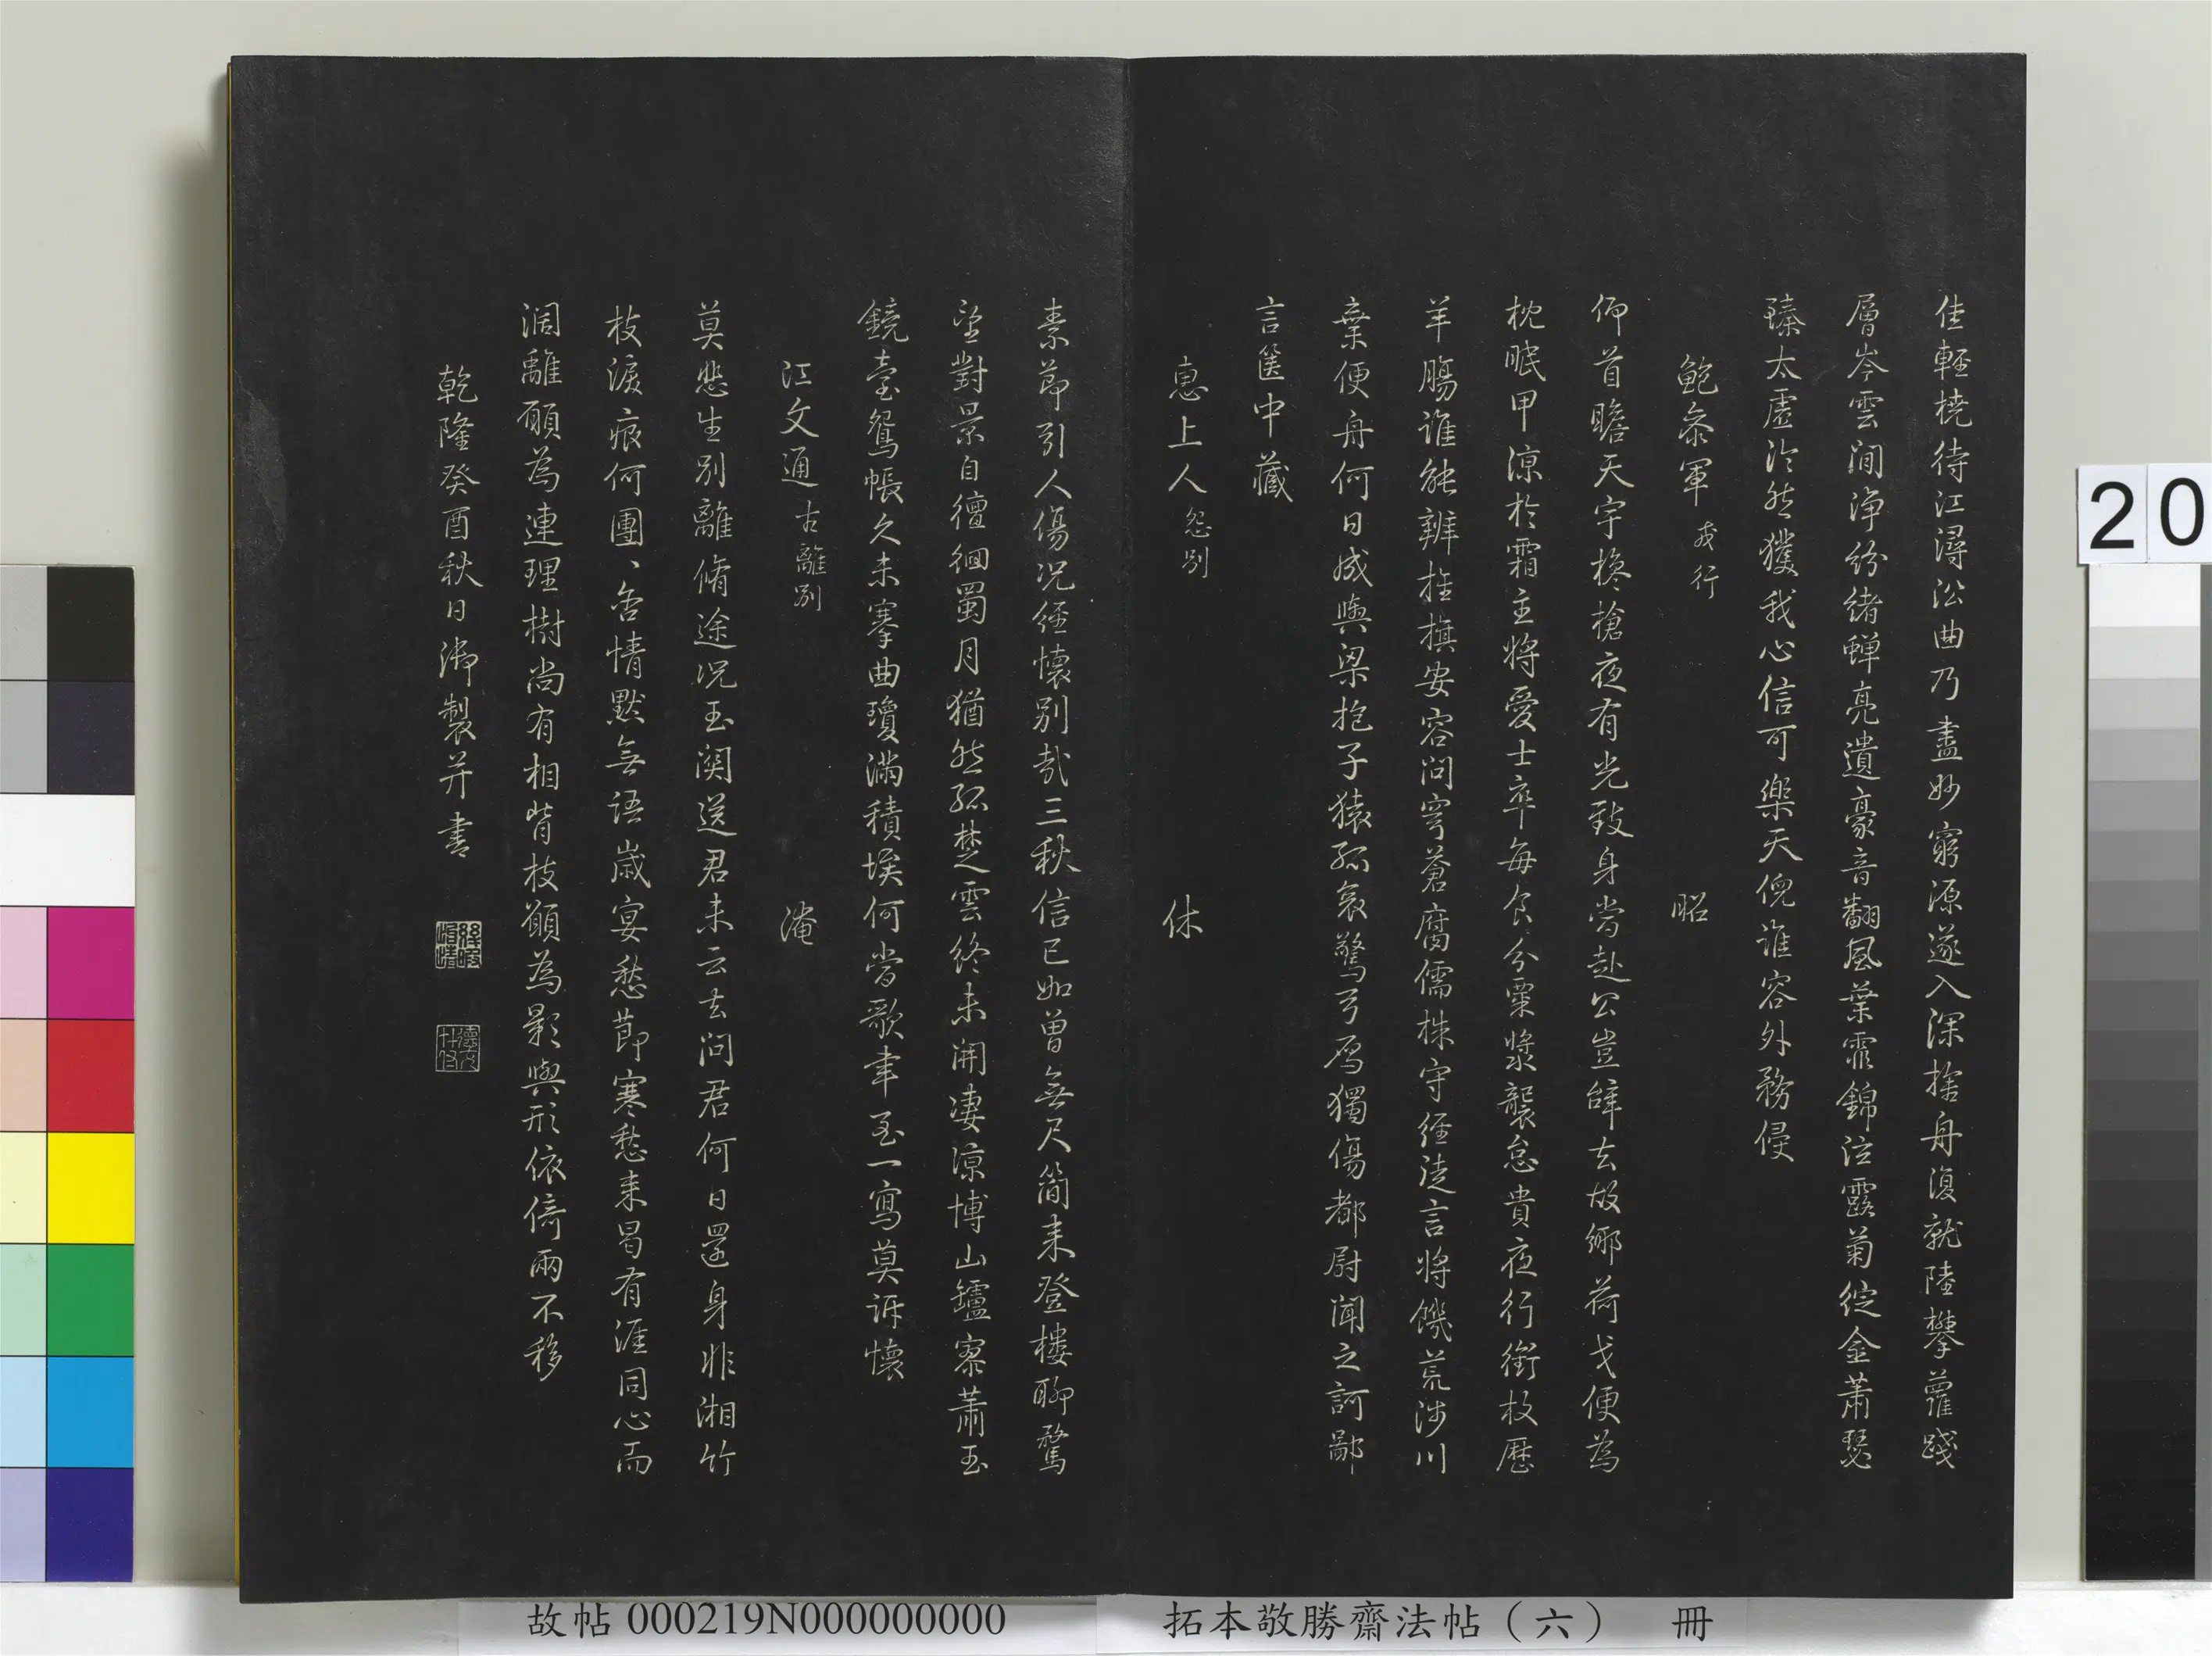 佳輕橈待江潯沿曲乃盡妙窮源遂入深捨舟復就陸攀蘿踐
層岑雲澗淨紛緒蟬亮遺豪音翻風葉霏錦泣露菊綻金蕭瑟
臻太虛泠然獲我心信可樂天倪誰容外務侵
鮑參軍 戎行 昭
仰首瞻天宇欃槍夜有光致身當赴公豈辭去故鄉荷戈便為
枕眠甲涼於霜主將愛士卒每食分粟漿襲怠貴夜行銜枚歷
羊腸誰能辨推旗安容問穹蒼腐儒株守經徒言將饑荒涉川
棄便舟何日成輿梁抱子猿孤哀驚弓鴈獨傷都尉聞之訶鄙
言篋中藏
惠上人 怨別 休
素節引人傷況經懷別哉三秋信已如曾無尺簡來登樓聊騖
望對景自徸徊蜀月猶然孤楚雲終未開淒涼博山鑪寥蕭玉
鏡臺鴛帳久未搴曲瓊滿積埃何當歌聿至一寫莫訴懷
江文通 古離別 淹
莫悲生別離脩途況玉關送君未云去問君何日還身非湘竹
枝淚痕何團、含情默無語歲宴愁節寒愁來曷有涯同心而
濶離願為連理樹尚有相背枝願為影與形依倚兩不移
乾隆癸酉秋日御製并書
20
故帖 000219N000000000
拓本敬勝齋法帖（六） 冊